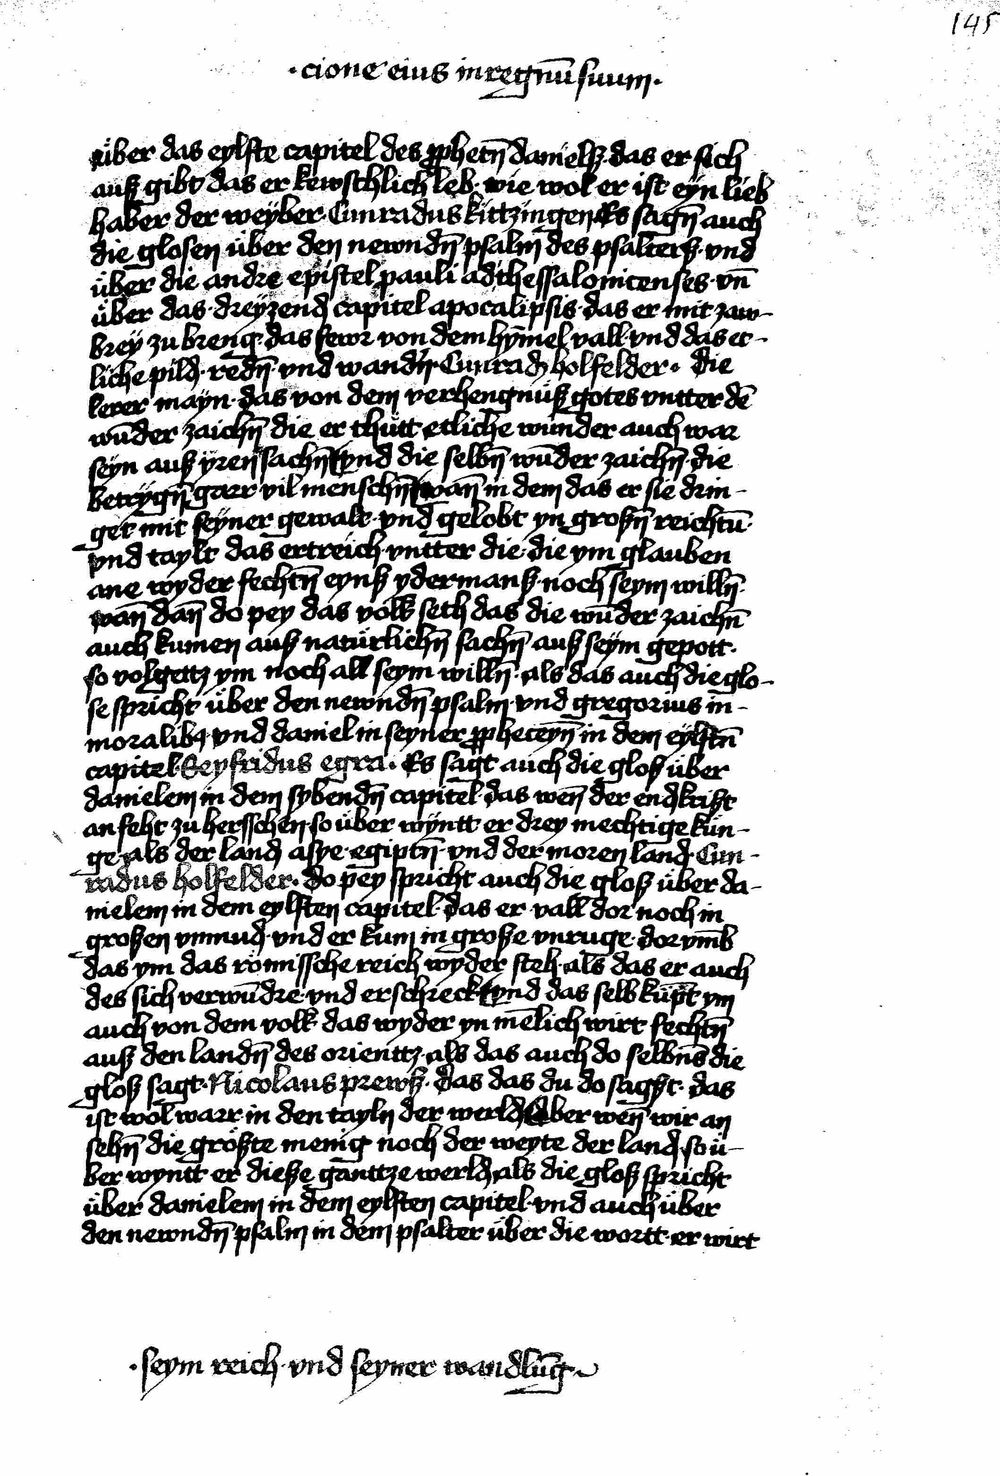 145
·cione eius in regnū suum·
über das eylfte capitel des ꝓphetn̄ daniels das er sich
auß gibt das er kewschlich leb· wie wol er ist eyn lieb
haber der weyber· Cunradus kittzingen Es sagn̄ auch
die glosen über den newndn̄ psalm des psalterß· vnd
über die andre epistel pauli ad thessalonicenses· vn̄
über das dreyzend capitel apocalipsis das er mit zaw-
brey zu breng· das fewr von dem hym̄el vall· vnd das et-
liche pild· redn̄· vnd wandn̄· Cunradꝫ holfelder· die
lerer mayn· das von dem verhengnüß gotes vntter dē
wūder zaichn̄ die er thütt etliche wunder auch war
seyn auß yren sachn̄ vnd die selbn̄ wūder zaichn̄ die
betrygn̄ garr vil menschn̄ wan̄ in dem das er sie drin-
get mit seyner gewalt· vnd gelobt yn großn̄ reichtū·
vnd taylt das ertreich vntter die· die ym glauben
ane wyder fechtn̄ eynß ydermanß· noch seym willn̄·
wan̄ dan̄ do pey das volk seth das die wūder zaichn̄
auch kumen auß natürlichn̄ sachn̄ auß seym gepott·
so volgettz ym noch all seym willn̄· als das auch die glo-
se spricht über den newndn̄ psalm· vnd gregorius in-
moralibꝫ· vnd daniel in seyner ꝓpheceyn̄ in dem eylftn̄
capitel· Seyfridus egra· Es sagt auch die gloß über
danielem in dem sybendn̄ capitel· das wen̄ der endkrißt
an feht zu hersschen so über wyntt er drey mechtige kün-
ge· als der land asye· egiptn̄· vnd der moren land· Cun-
radus holfelder· do pey spricht auch die gloß über da-
nielem in dem eylften capitel· das er vall dor noch in
großen vnmud· vnd er kum in große vnruge· dor vm̄b
das ym das römissche reich wyder steh· als das er auch
des sich verwūdre· vnd erschreck· vnd das selb küpt ym
auch von dem volk· das wyder yn mēlich wirt fechtn̄
auß den landn̄ des orienttz· als das auch do selbnß die
gloß sagt· Nicolaus prewß· das das du do sagst· das
ist wol warr in den tayln der werld Aber wen̄ wir an
sehn̄ die größte menig noch der weyte der land· so ü-
ber wyntt er dieße ganttze werld, als die gloß spricht
über danielem in dem eylften capitel· vnd auch über
den newndn̄ psalm in dem psalter über die wortt· er wirt
·seym reich· vnd seyner wandlūg·